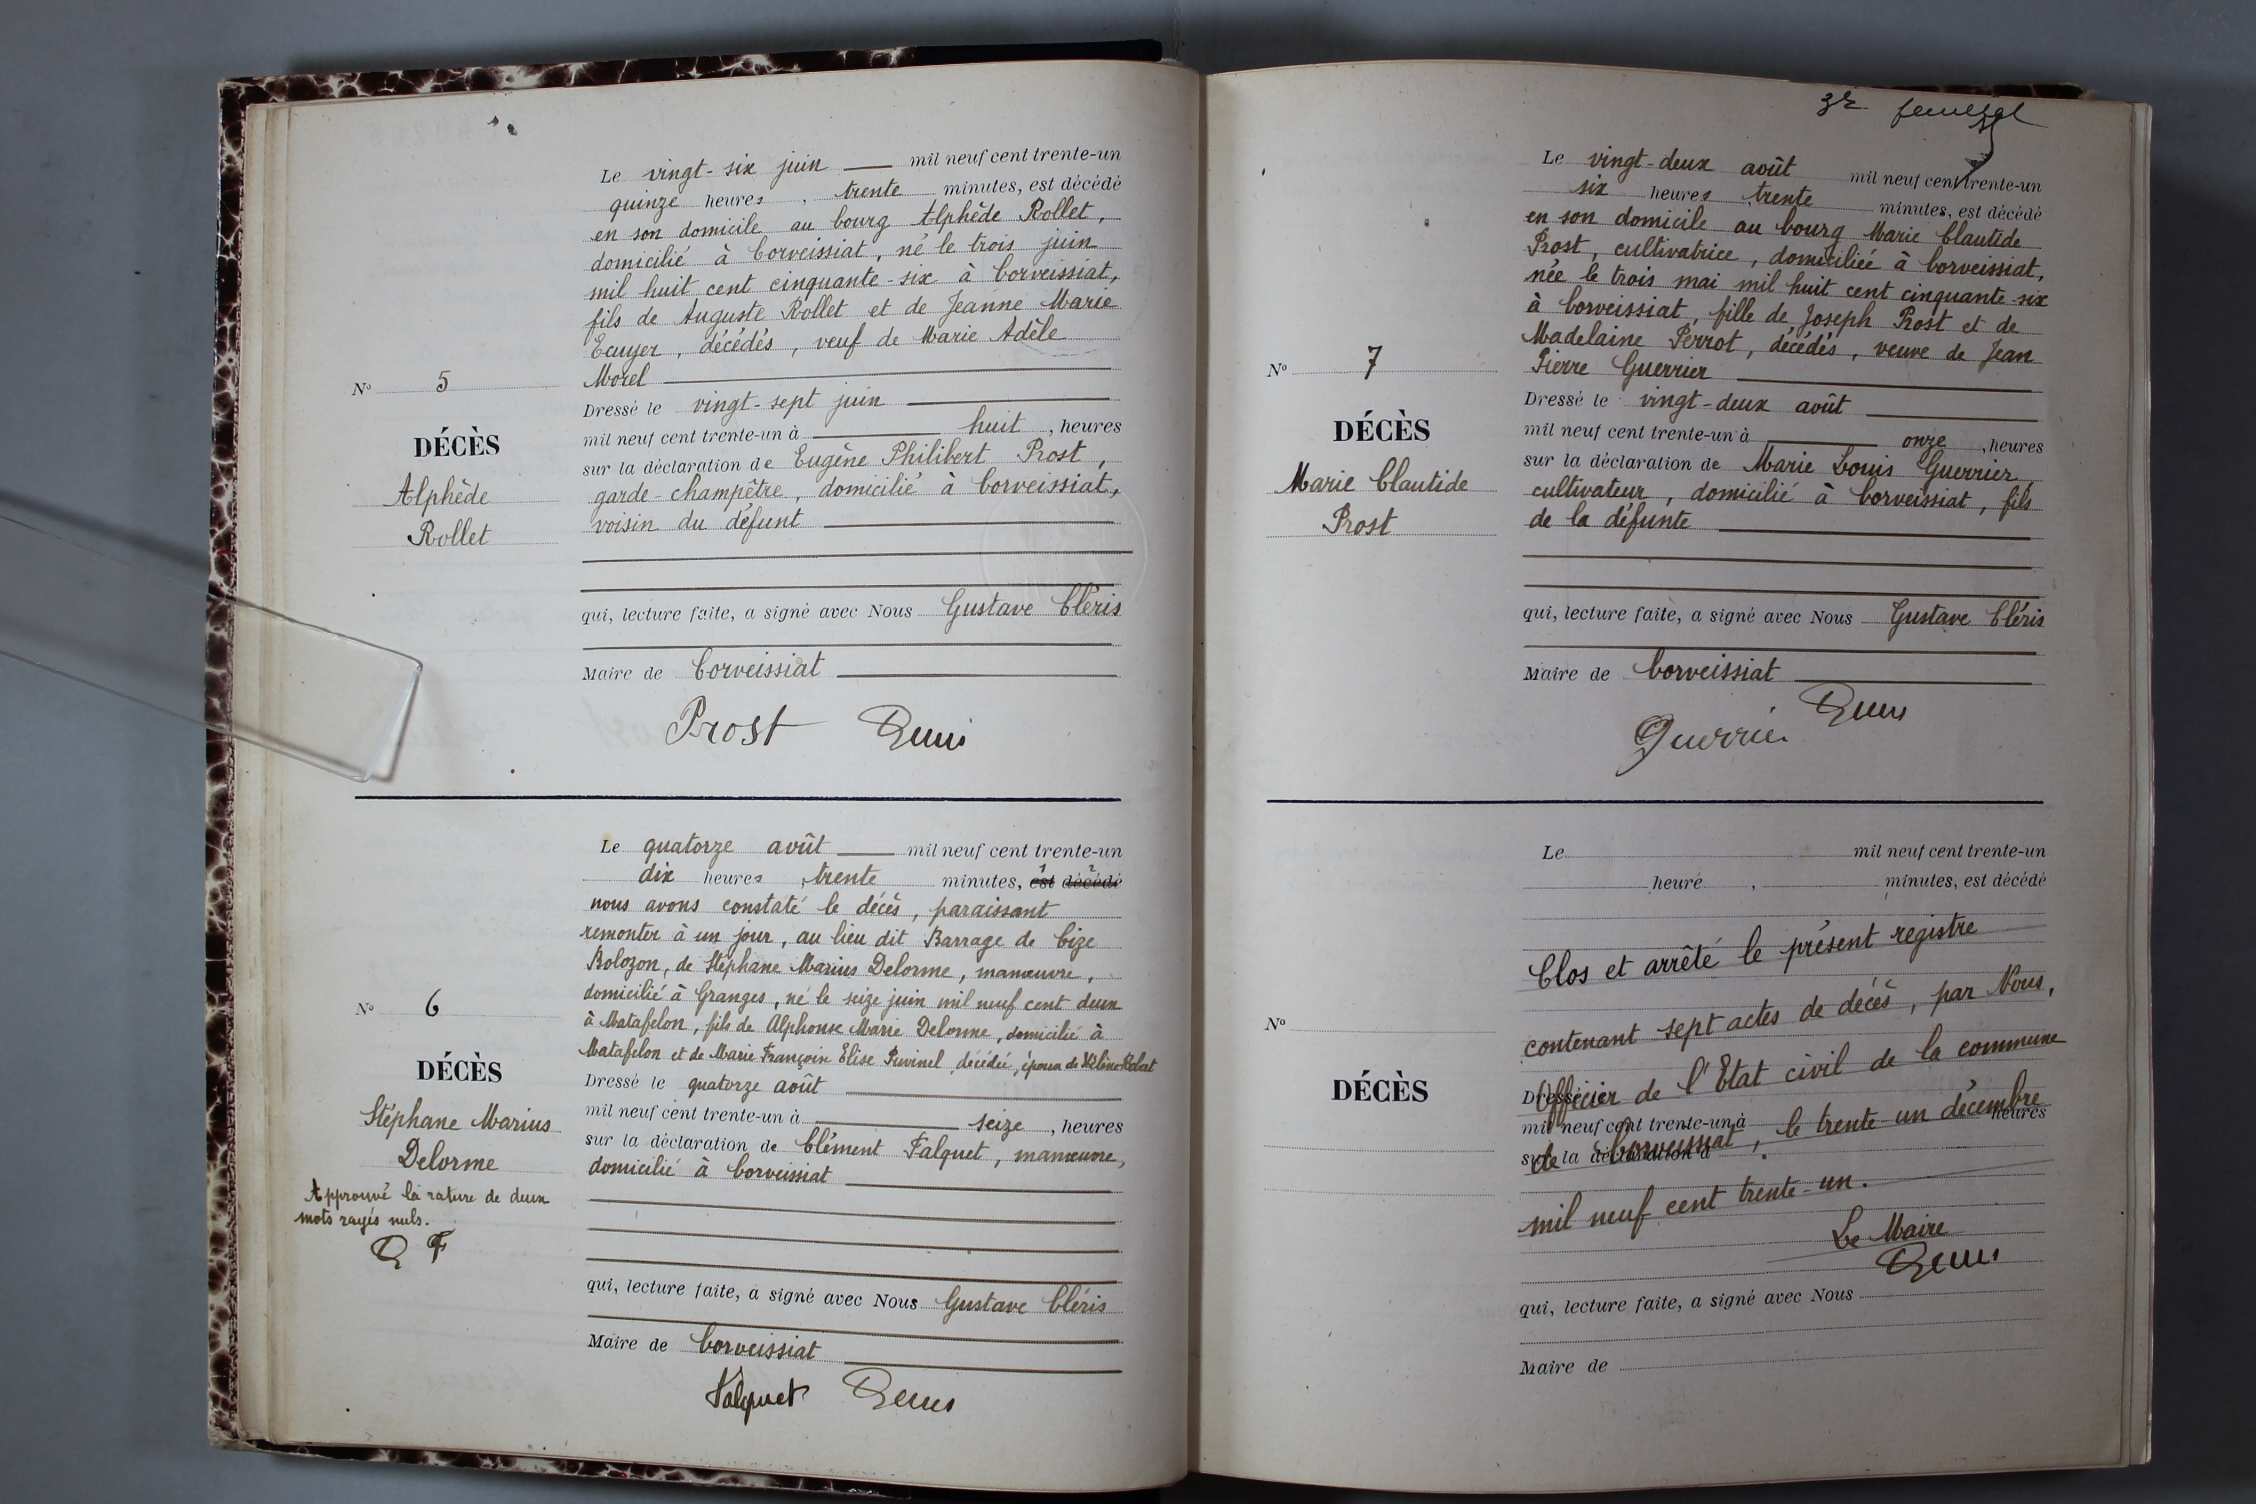 Le vingt-six juin mil neuf cent trente-un
quinze heures, trente minutes, est décédé
en son domicile au bourg Alphède Rollet,
domicilié à Corveissiat, né le trois juin
mil huit cent cinquante-six à Corveissiat,
fils de Auguste Rollet et de Jeanne Marie
Ecuyer, décédés, veuf de Marie Adèle
Morel
Nº 5
Dressé le vingt-sept juin
mil neuf cent trente-un à huit, heures
DÉCÈS
sur la déclaration de Eugène Philibert Prost,
Alphède
garde-champêtre, domicilié à Corveissiat,
Rollet
voisin du défunt
qui, lecture faite, a signé avec Nous Gustave Cléris
Maire de Corveissiat
Prost
Le quatorze août mil neuf cent trente-un
dix heures, trente minutes, est décédé
nous avons constaté le décès, paraissant
remonter à un jour, au lieu dit Barrage de Cize
Bolozon, de Stéphane Marius Delorme, manœuvre,
domicilié à Granges, né le seize juin mil neuf cent deux
Nº 6
à Matafelon, fils de Alphonse Marie Delorme, domicilié à
Matafelon et de Marie Françoise Elise décédée, époux de Hélène
DÉCÈS
Dressé le quatorze août
Stéphane Marius
mil neuf cent trente-un à seize, heures
Delorme
sur la déclaration de Clément Falquet, manœuvre,
domicilié à Corveissiat
Approuvé la rature de deux
mots rayés nuls.
F
qui, lecture faite, a signé avec Nous Gustave Cléris
Maire de Corveissiat
Falquet
Le vingt-deux août mil neuf cent trente-un
six heures, trente minutes, est décédé
en son domicile au bourg Marie Clautide
Prost, cultivatrice, domiciliée à Corveissiat,
née le trois mai mil huit cent cinquante-six
à Corveissiat, fille de Joseph Prost et de
Madelaine Perrot, décédés, veuve de Jean
Nº 7
Pierre Guerrier
Dressé le vingt-deux août
DÉCÈS
mil neuf cent trente-un à onze, heures
sur la déclaration de Marie Louis Guerrier,
Marie Clautide
cultivateur, domicilié à Corveissiat, fils
Prost
de la défunte
qui, lecture faite, a signé avec Nous Gustave Cléris
Maire de Corveissiat
Guerrier
Le mil neuf cent trente-un
heure, minutes, est décédé
Clos et arrêté le présent registre
contenant sept actes de décès, par Nous,
Nº
Officier de l'Etat civil de la commune
DÉCÈS
Dressé le
mil neuf cent trente-un à heures
de Corveissiat, le trente-un décembre
sur la déclaration d
mil neuf cent trente-un.
Le Maire
qui, lecture faite, a signé avec Nous
Maire de